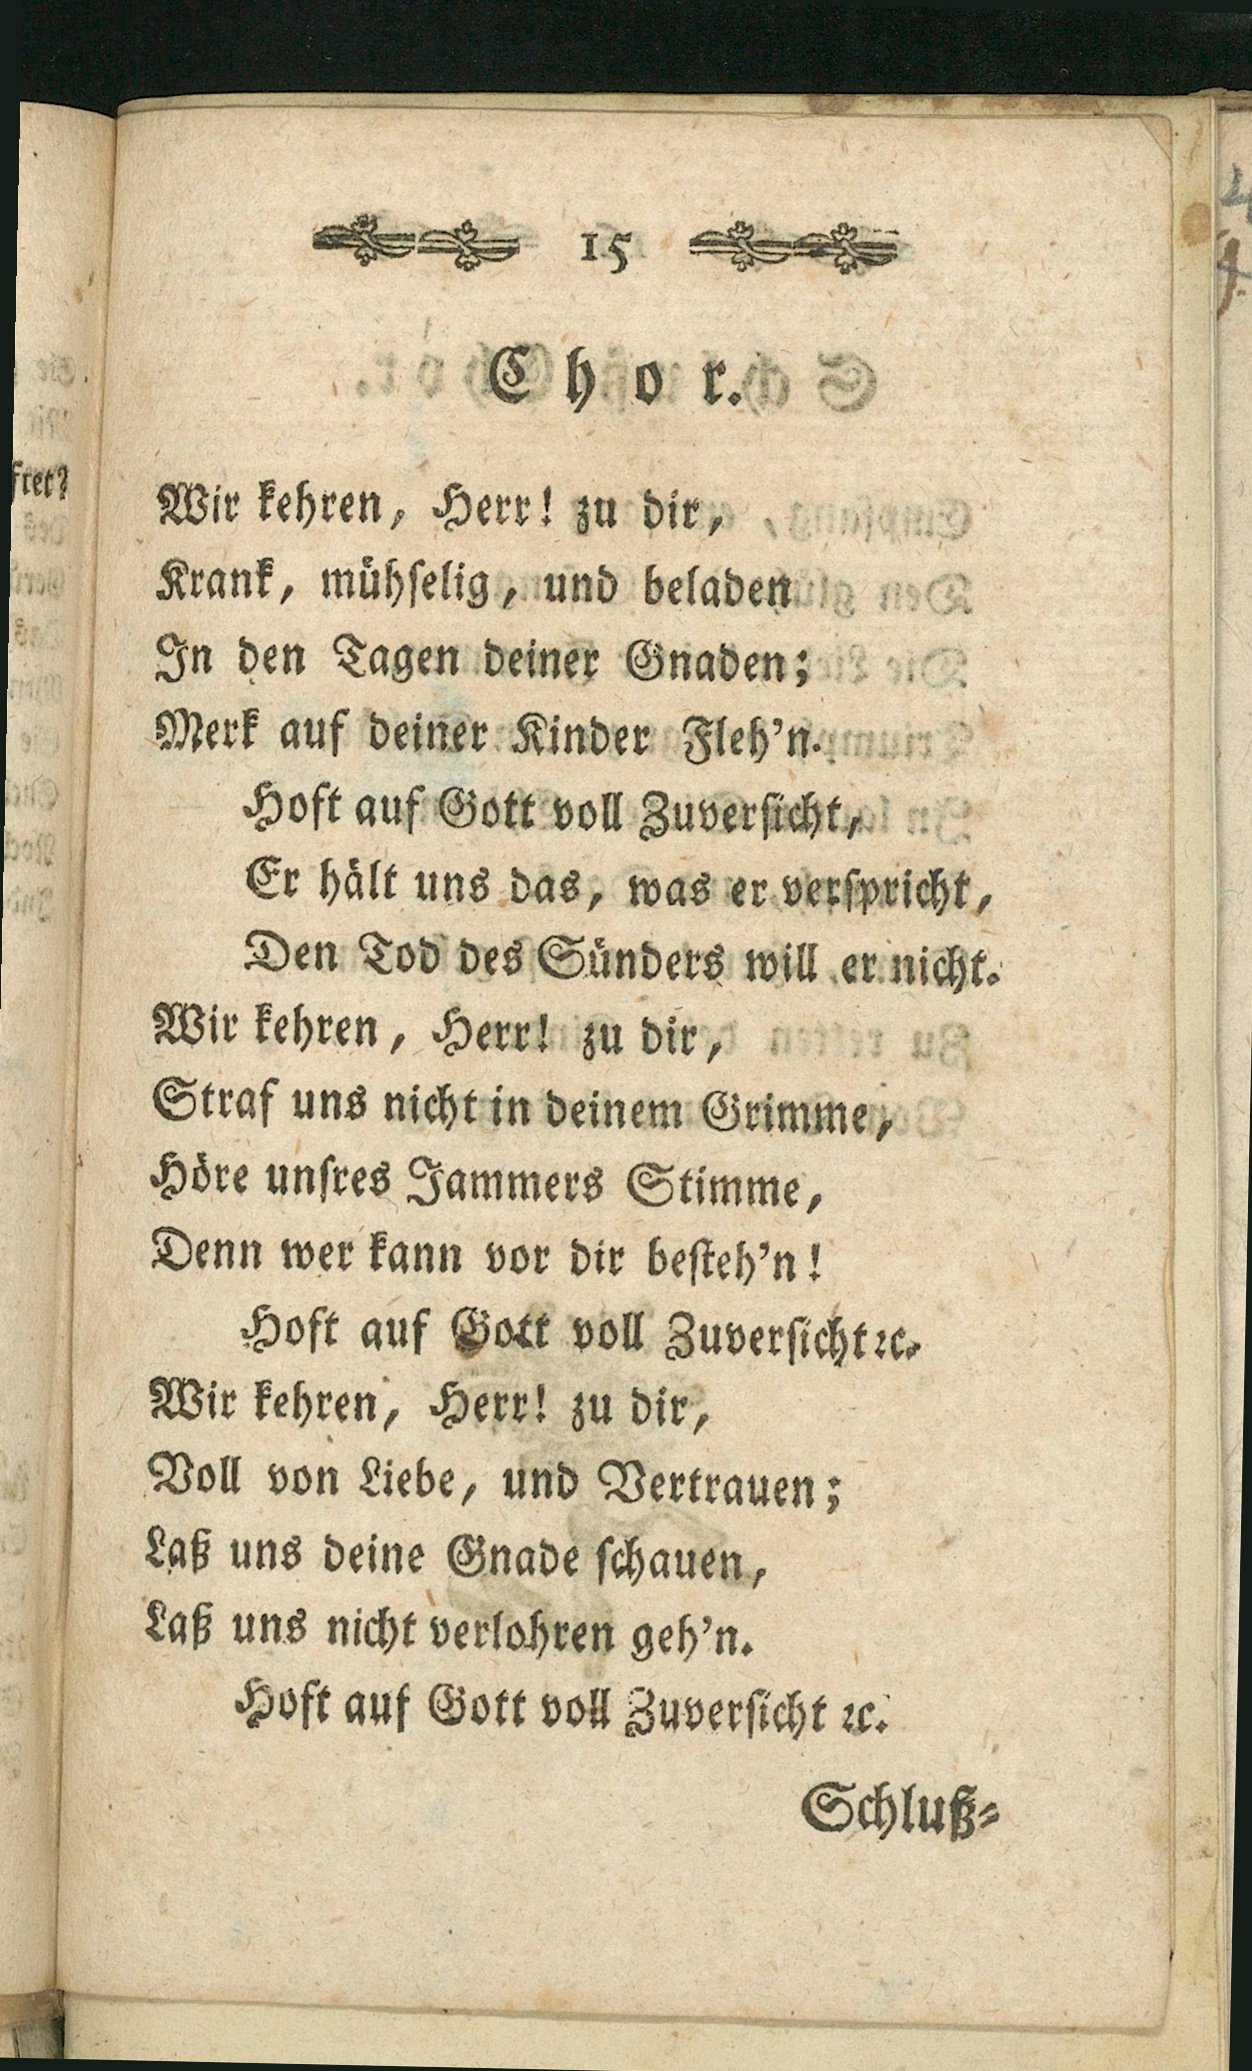 15
Chor.
Wir kehren, Herr! zu dir,
Krank, mühſelig, und beladen
In den Tagen deiner Gnaden;
Merk auf deiner Kinder Fleh’n.
Hoft auf Gott voll Zuverſicht,
Er hält uns das, was er verſpricht,
Den Tod des Sünders will er nicht.
Wir kehren, Herr! zu dir,
Straf uns nicht in deinem Grimme,
Höre unſres Jammers Stimme,
Denn wer kann vor dir beſteh’n!
Hoft auf Gott voll Zuverſicht ꝛc.
Wir kehren, Herr! zu dir,
Voll von Liebe, und Vertrauen;
Laß uns deine Gnade ſchauen,
Laß uns nicht verlohren geh’n.
Hoft auf Gott voll Zuverſicht ꝛc.
Schluß-